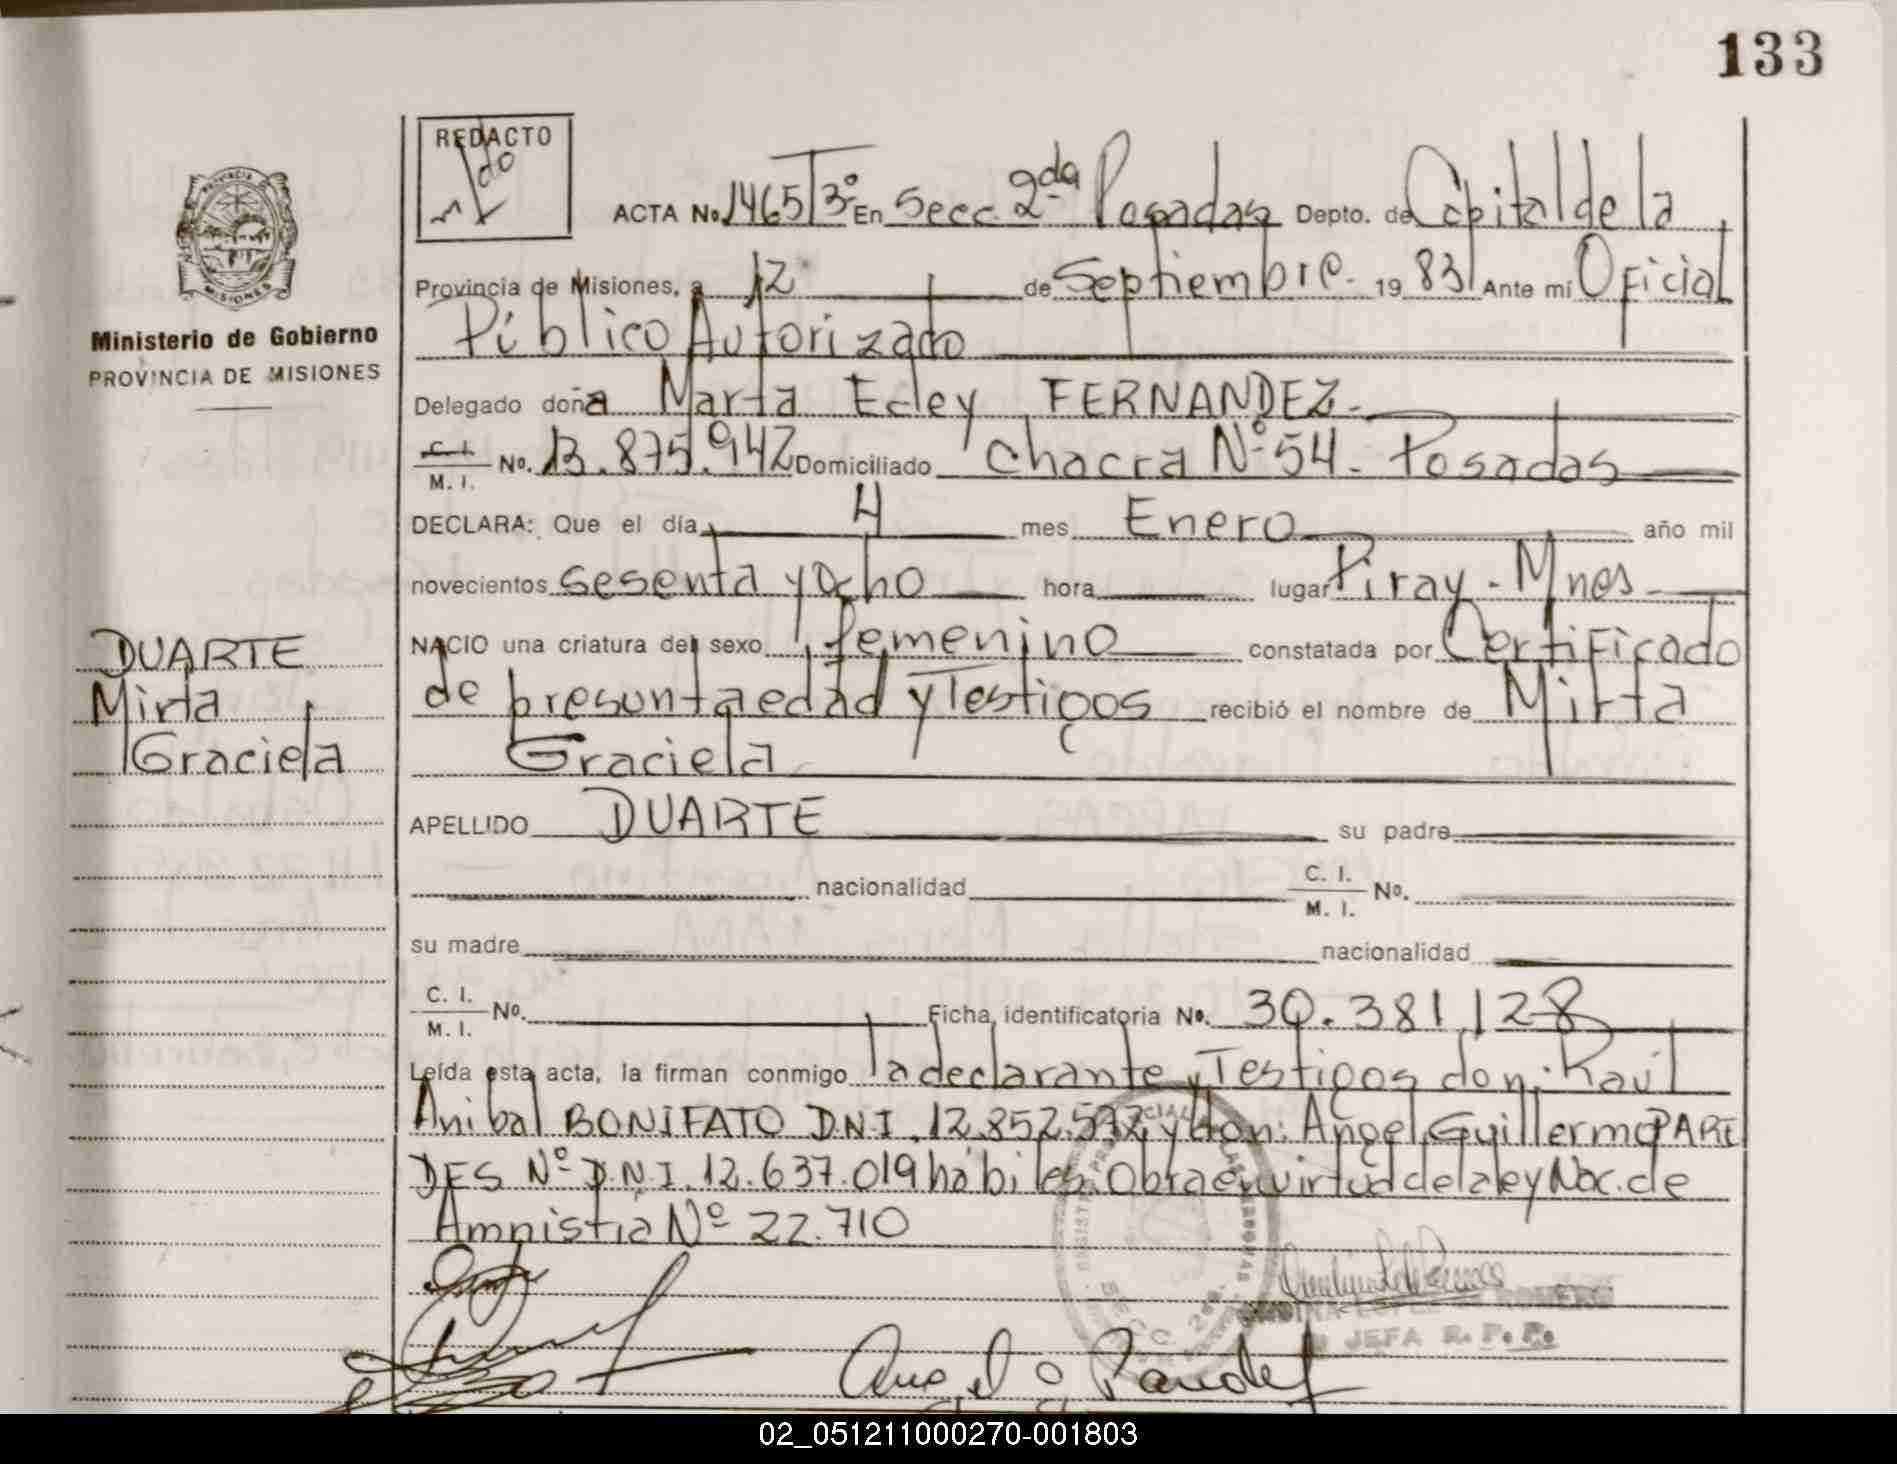 133
REDACTO
ACTA No. 1465 T 3º En Secc. 2da Posadas Depto. de Capital de la
Provincia de Misiones, a 12 de Septiembre. 1983 Ante mí Oficial
Público Autorizado
Ministerio de Gobierno
PROVINCIA DE MISIONES
Delegado doña Marta Ecley FERNANDEZ.-
C. I.
M. I. No. 13.875.942 Domiciliado Chacra Nº 54. Posadas
DECLARA: Que el día 4 mes Enero año mil
novecientos sesenta y ocho hora lugar Piray - Mnes
NACIO una criatura del sexo femenino constatada por Certificado
de presunta edad y Testigos recibió el nombre de Mirta
Graciela
DUARTE
Mirta
Graciela
APELLIDO DUARTE su padre
nacionalidad C. I.
M. I. No.
su madre nacionalidad
C. I.
M. I. No. Ficha identificatoria No. 30.381.128
Leída esta acta, la firman conmigo la declarante y Testigos don: Raúl
Anibal BONIFATO D.N.I. 12.852.592 y don: Angel Guillermo PARE
DES Nº D.N.I. 12.637.019 hábiles. Obra en virtud de la ley Nac. de
Amnistia Nº 22.710
SECC. 2da.
ROMERO
JEFA R. P. P.
02_051211000270-001803